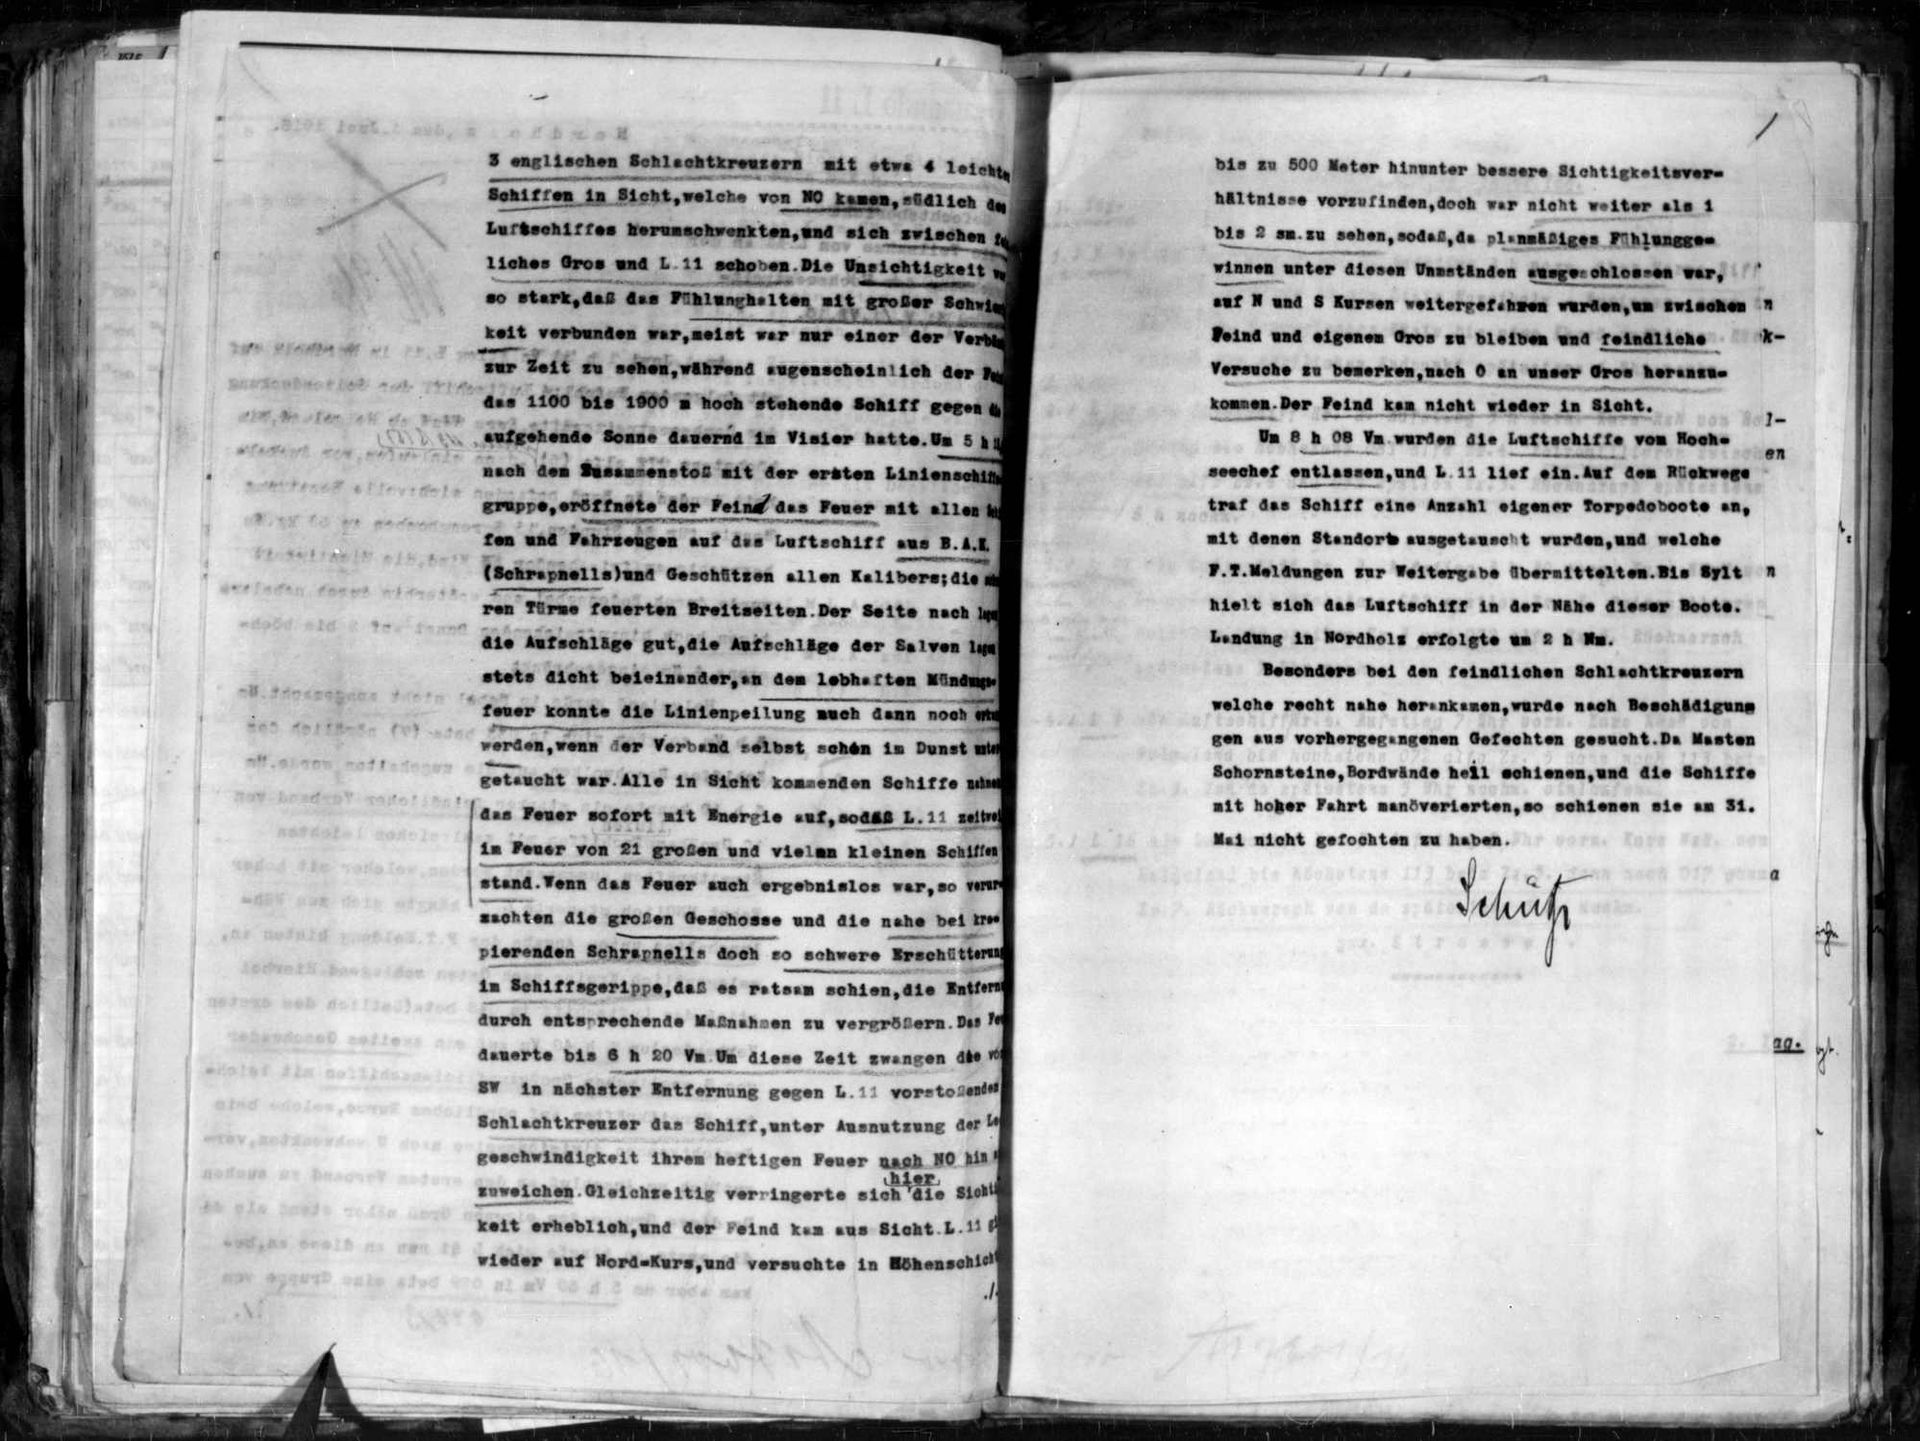 3 englischen Schlachtkreuzern mit etwa 4 leichten
Schiffen in Sicht,welche von NO kamen,südlich des
Luftschiffes herumschwenkten,und sich zwischen
liches Gros und L.11 schoben.Die Unsichtigkeit
so stark,daß das Fühlunghalten mit großer Schwie
keit verbunden war,meist war nur einer der Verbän
zur Zeit zu sehen,während augenscheinlich der Fein
das 1100 bis 1900 m hoch stehende Schiff gegen die
aufgehende Sonne dauernd im Visier hatte.Um 5 h
nach dem Zusammenstoß mit der ersten Linienschiffs
gruppe,eröffnete der Feind das Feuer mit allen
fen und Fahrzeugen auf das Luftschiff aus B.A.K.
(Schrapnells)und Geschützen allen Kalibers;die
ren Türme feuerten Breitseiten.Der Seite nach lagen
die Aufschläge gut,die Aufschläge der Salven lagen
stets dicht beieinander,an dem lebhaften Mündungs-
feuer konnte die Linienpeilung auch dann noch
werden,wenn der Verband selbst schon im Dunst unter
getaucht war.Alle in Sicht kommenden Schiffe nahmen
das Feuer sofort mit Energie auf,sodaß L.11 zeitwei
im Feuer von 21 großen und vielen kleinen Schiffen
stand.Wenn das Feuer auch ergebnislos war,so verur-
sachten die großen Geschosse und die nahe bei kre-
pierenden Schrapnells doch so schwere Erschütterung
im Schiffsgerippe,daß es ratsam schien,die Entfern
durch entsprechende Maßnahmen zu vergrößern.Das
dauerte bis 6 h 20 Vm.Um diese Zeit zwangen die
SW in nächster Entfernung gegen L.11 vorstoßenden
Schlachtkreuzer das Schiff,unter Ausnutzung der
geschwindigkeit ihrem heftigen Feuer nach NO hin
hier
zuweichen.Gleichzeitig verringerte sich die Sichti
keit erheblich,und der Feind kam aus Sicht.L.11
wieder auf Nord-Kurs,und versuchte in Höhenschich
./.
bis zu 500 Meter hinunter bessere Sichtigkeitsver-
hältnisse vorzufinden,doch war nicht weiter als 1
bis 2 sm.zu sehen,sodaß,da planmäßiges Fühlungge-
winnen unter diesen Umständen ausgeschlossen war,
auf N und S Kursen weitergefahren wurden,um zwischen
Feind und eigenem Gros zu bleiben und feindliche
Versuche zu bemerken,nach O an unser Gros heranzu-
kommen.Der Feind kam nicht wieder in Sicht.
Um 8 h 08 Vm.wurden die Luftschiffe vom Hoch-
seechef entlassen,und L.11 lief ein.Auf dem Rückwege
traf das Schiff eine Anzahl eigener Torpedoboote an,
mit denen Standort ausgetauscht wurden,und welche
F.T.Meldungen zur Weitergabe übermittelten.Bis Sylt
hielt sich das Luftschiff in der Nähe dieser Boote.
Landung in Nordholz erfolgte um 2 h Nm.
Besonders bei den feindlichen Schlachtkreuzern
welche recht nahe herankamen,wurde nach Beschädigun
gen aus vorhergegangenen Gefechten gesucht.Da Masten
Schornsteine,Bordwände heil schienen,und die Schiffe
mit hoher Fahrt manöverierten,so schienen sie am 31.
Mai nicht gefochten zu haben.
Schütz